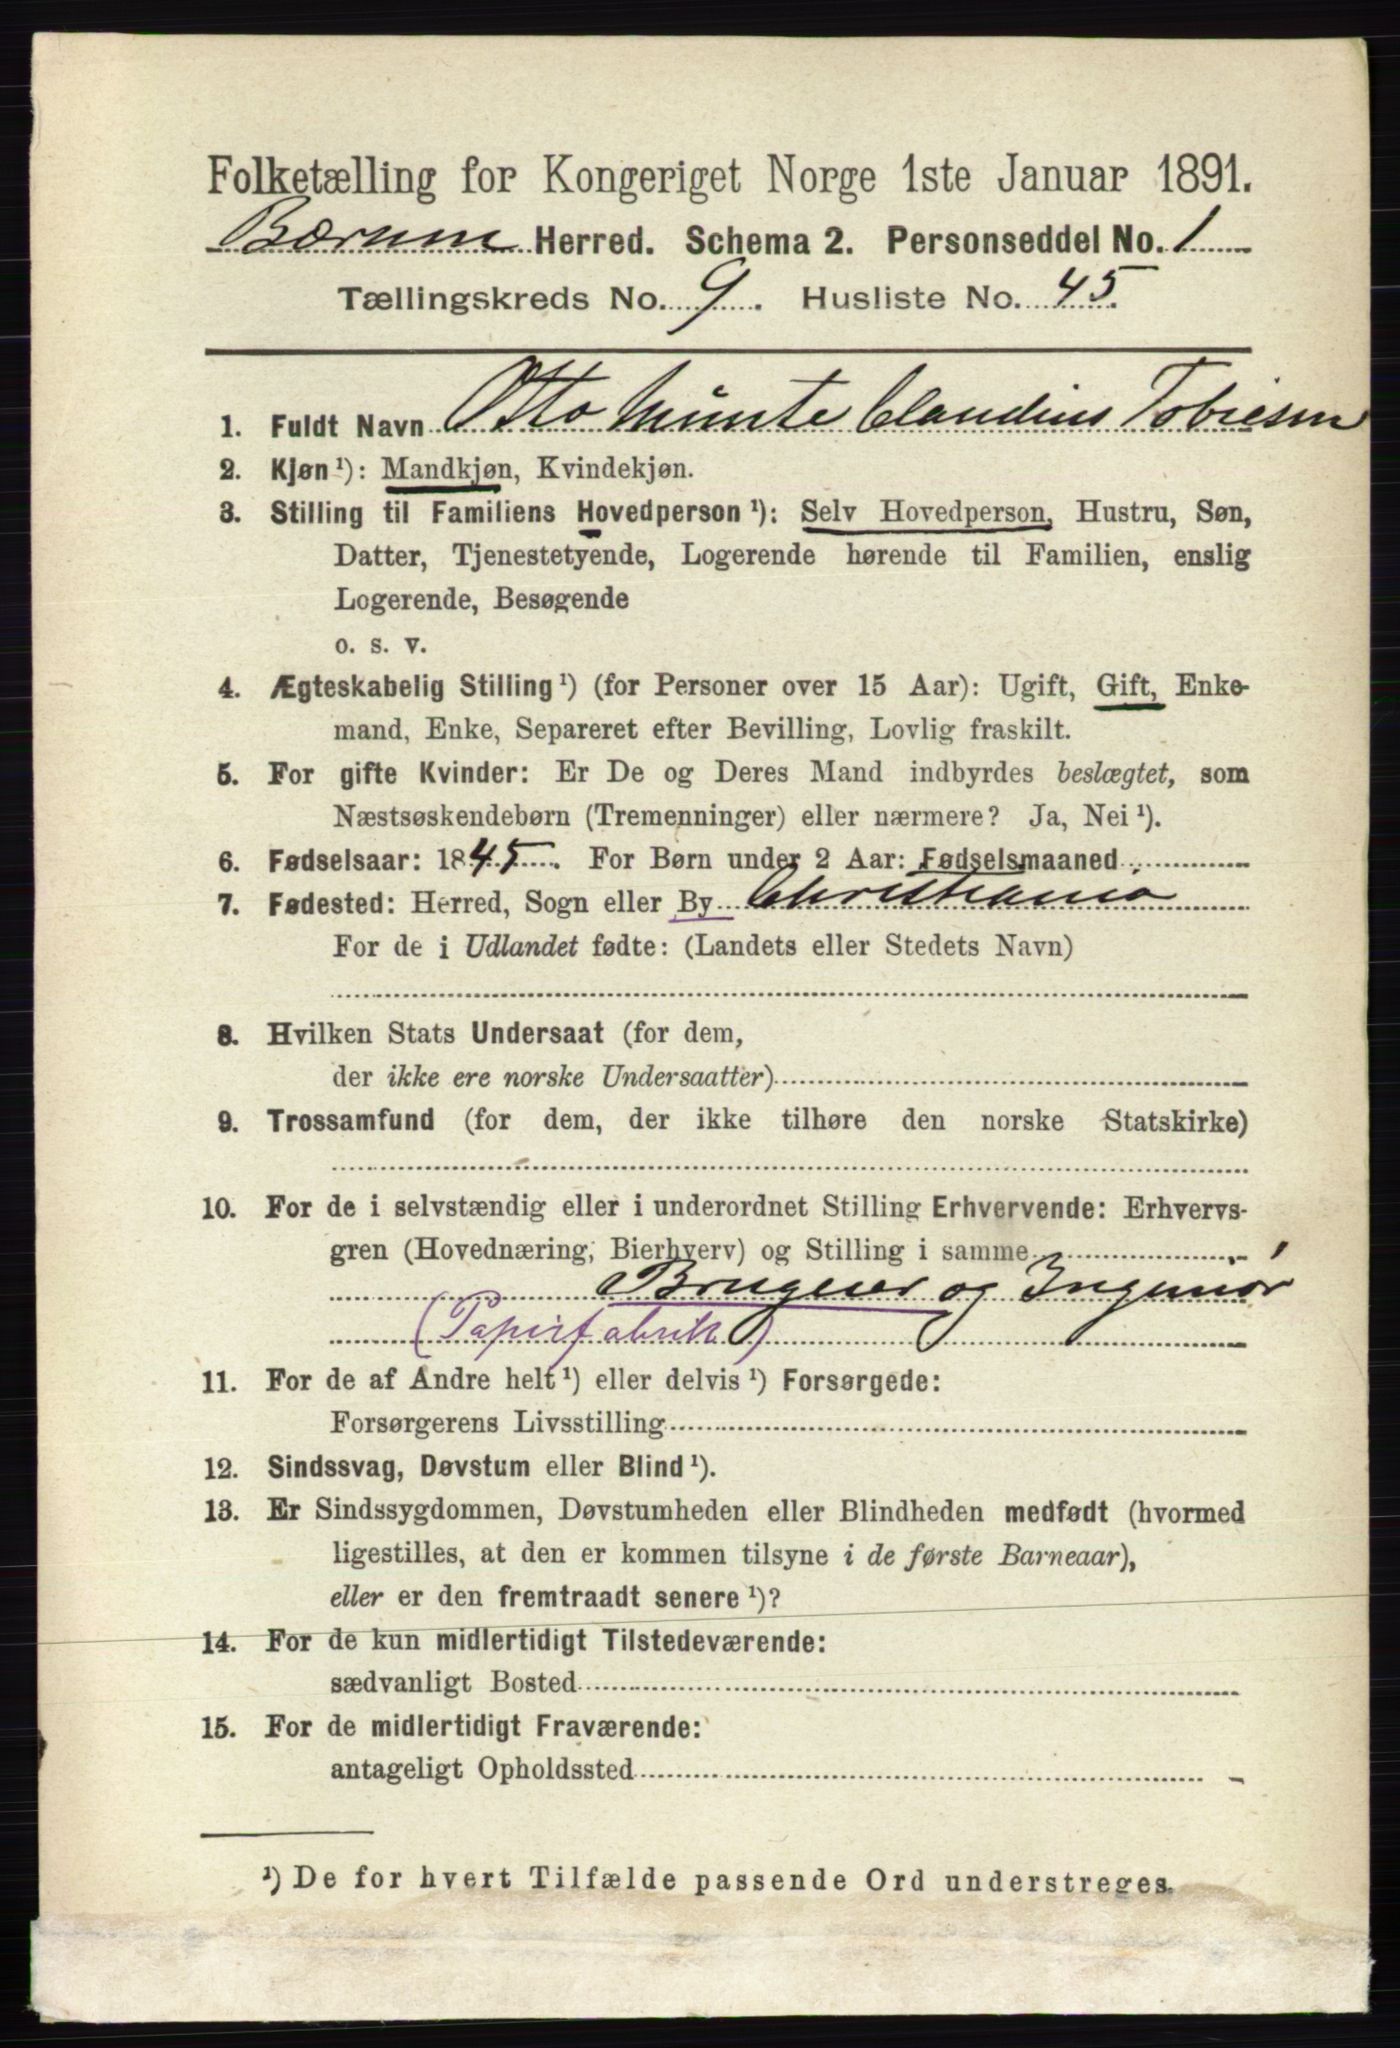 Folketælling for Kongeriget Norge 1ste Januar 1891.
Bærum Herred. Schema 2. Personseddel No. 1
Tællingskreds No. 9. Husliste No. 45.
1. Fuldt Navn Otto Münte Claudius Tobiesen
2. Kjøn ¹): Mandkjøn, Kvindekjøn.
3. Stilling til Familiens Hovedperson ¹): Selv Hovedperson, Hustru, Søn,
Datter, Tjenestetyende, Logerende hørende til Familien, enslig
Logerende, Besøgende
o. s. v.
4. Ægteskabelig Stilling ¹) (for Personer over 15 Aar): Ugift, Gift, Enke-
mand, Enke, Separeret efter Bevilling, Lovlig fraskilt.
5. For gifte Kvinder: Er De og Deres Mand indbyrdes beslægtet, som
Næstsøskendebørn (Tremenninger) eller nærmere? Ja, Nei ¹).
6. Fødselsaar: 1845. For Børn under 2 Aar: Fødselsmaaned
7. Fødested: Herred, Sogn eller By Christiania
For de i Udlandet fødte: (Landets eller Stedets Navn)
8. Hvilken Stats Undersaat (for dem,
der ikke ere norske Undersaatter)
9. Trossamfund (for dem, der ikke tilhøre den norske Statskirke)
10. For de i selvstændig eller i underordnet Stilling Erhvervende: Erhvervs-
gren (Hovednæring, Bierhverv) og Stilling i samme
Brugeier og Ingeniør
(Papirfabrik)
11. For de af Andre helt ¹) eller delvis ¹) Forsørgede:
Forsørgerens Livsstilling
12. Sindssvag, Døvstum eller Blind ¹).
13. Er Sindssygdommen, Døvstumheden eller Blindheden medfødt (hvormed
ligestilles, at den er kommen tilsyne i de første Barneaar),
eller er den fremtraadt senere ¹)?
14. For de kun midlertidigt Tilstedeværende:
sædvanligt Bosted
15. For de midlertidigt Fraværende:
antageligt Opholdssted
¹) De for hvert Tilfælde passende Ord understreges.